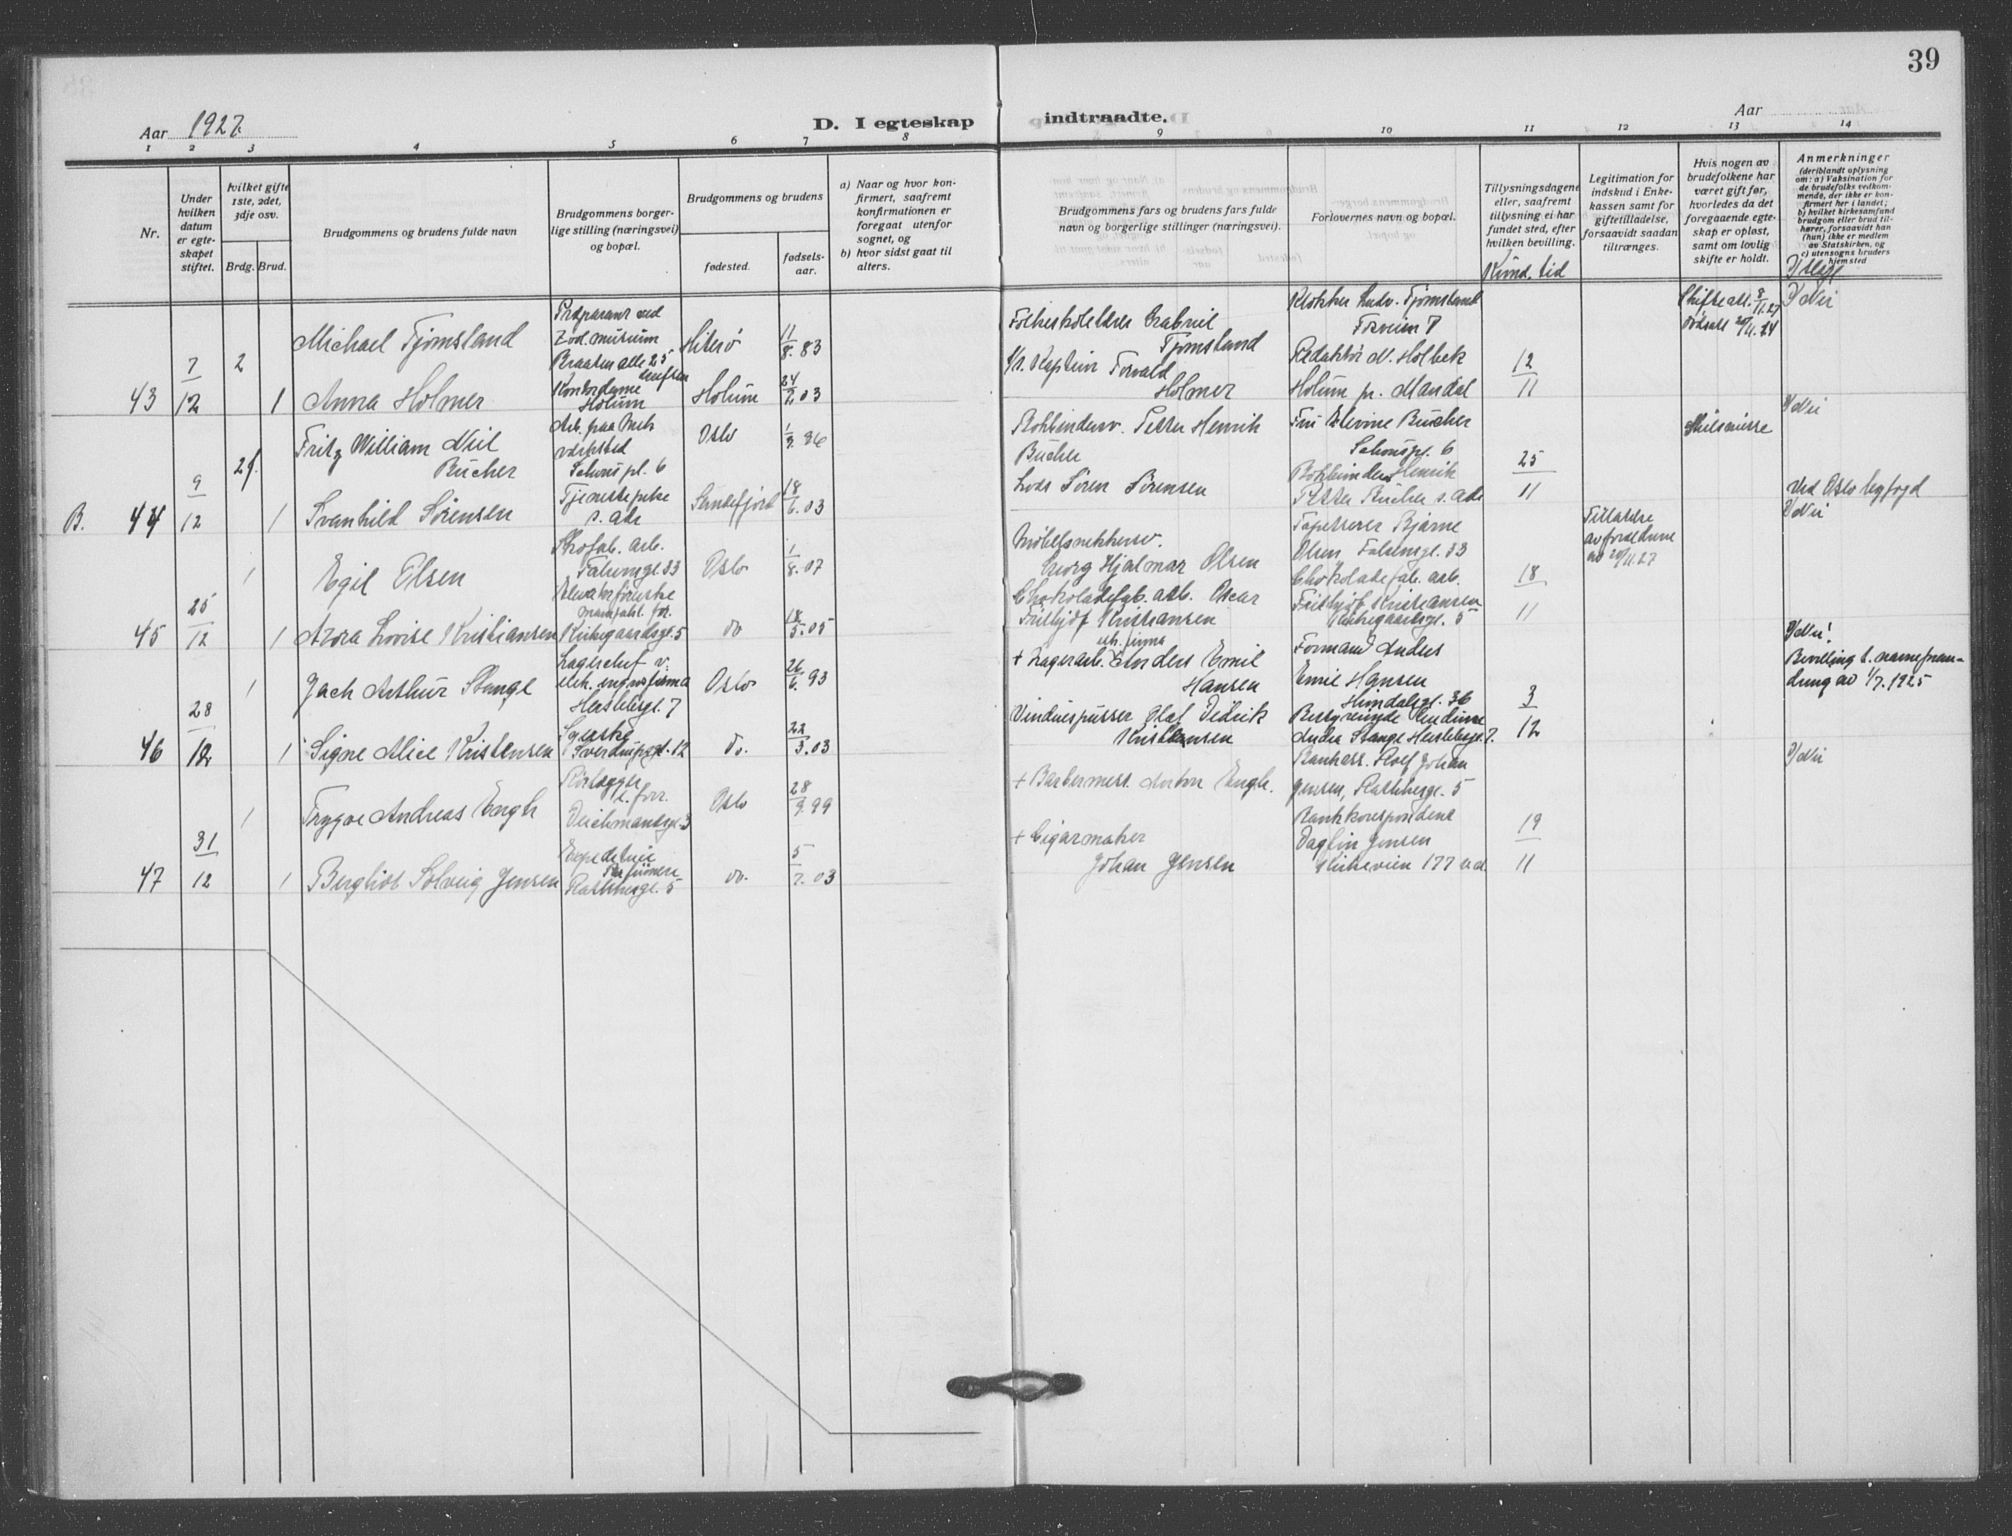 39
Aar 1927.
D. I egteskap indtraadte.
Aar
1 2 3 4 5 6 7 8 9 10 11 12 13 14
Nr.
Under
hvilken
datum
er egte-
skapet
stiftet.
hvilket gifte
1ste, 2det,
3dje osv.
Brdg. Brud.
Brudgommens og brudens fulde navn
Brudgommens borger-
lige stilling (næringsvei)
og bopæl.
Brudgommens og brudens
fødested.
fødsels-
aar.
a) Naar og hvor kon-
firmert, saafremt
konfirmationen er
foregaat utenfor
sognet, og
b) hvor sidst gaat til
alters.
Brudgommens fars og brudens fars fulde
navn og borgerlige stillinger (næringsvei).
Forlovernes navn og bopæl.
Tillysningsdagene
eller, saafremt
tillysning ei har
fundet sted, efter
hvilken bevilling.
Kund. tid
Legitimation for
indskud i Enke-
kassen samt for
giftetilladelse,
forsaavidt saadan
tiltrænges.
Hvis nogen av
brudefolkene har
været gift før,
hvorledes da det
foregaaende egte-
skap er opløst,
samt om lovlig
skifte er holdt.
Anmerkninger
(deriblandt oplysning
om: a) Vaksination for
de brudefolks vedkom-
mende, der ikke er kon-
firmert her i landet;
b) hvilket kirkesamfund
brudgom eller brud til-
hører, forsaavidt han
(hun) ikke er medlem
av Statskirken, og
c) utensogns bruders
hjemsted
43
7/12
2
Michael Tjømsland
Præparant ved
Zool. museum
Braaten alle 25
Hiterø
11/8. 83
Folkeskolelærer Gabriel
Tjømsland
Klokker Ludv. Tjømsland
Forveien 7
12/11
Skifteatt. 8/11.27
Dødsatt. 20/11.24
Nei
1
Anna Holmer
Kontordame
Holum
Holum
24/2 03
Kaptein Torvald
Holmer
Redaktør N. Holbek
Holum pr. Mandal
B. 44
9/12
2f.
Fritz William Neil
Bücher
Arb. paa Mek
værksted
Schous pl. 6
Oslo
Bokbinderv. Petter Henrik
Bücher
Fru Elevine Bücher
Schouspl. 6
25/11
Skilsmisse
Nei
1
Svanhild Sørensen
Tjenestepike
s. ads
Sandefjord
18/6. 03
Lods Søren Sørensen
Bokbinder Henrik
Petter Bücher s. ads
Ved Oslo byfogd
45
25/12
1
Egil Olsen
Skofab. arb.
Falsensgt 33
Oslo
1/8. 07
Møbelsnekkersv.
Georg Hjalmar Olsen
Tapetserer Bjarne
Olsen Falsensgt. 33
18/11
Tilladelse
av foreldrene
av 20/11.27
Nei
1
Azora Lovise Kristiansen
Kirkegaardsgt. 5
do
18/5. 05
Chokoladefab. arb. Oscar
Frithjof Kristiansen
Chokoladefab. arb.
Frithjof Kristiansen
Kirkegaardsgt. 5
46
28/12
1
Jack Arthur Stange
Lagerchef v.
elek. engrosfirma
Herslebsgt. 7
Oslo
26/6. 93
+ Lagerarb. Anders Emil
Hansen
Formand Anders
Emil Hansen
3/12
Nei!
Bevilling t. navnefran-
dring av 1/7. 1925
1
Signe Alice Kristensen
Syerske
Sverdrupsgt. 12
do.
22/3. 03
Vinduespusser Olaf Dedrik
Kristensen
Bestyrerinde
Andra Stange Herslebsgt. 7.
47
31/12
1
Trygve Andreas Engh
Rørlægger
Deichmandsgt. 3
Oslo
28/9. 99
+ Barbermest. Anton Engh.
Bankass. Rolf Johan
Jensen, Rathkesgt. 5
19/11
Nei
1
Bergliot Solveig Jensen
Expeditrice
Rathkesgt. 5
do.
5/7. 03
+ Cigarmaker
Johan Jensen
Bankkorrespondent
Dagfin Jensen
Kirkeveien 177